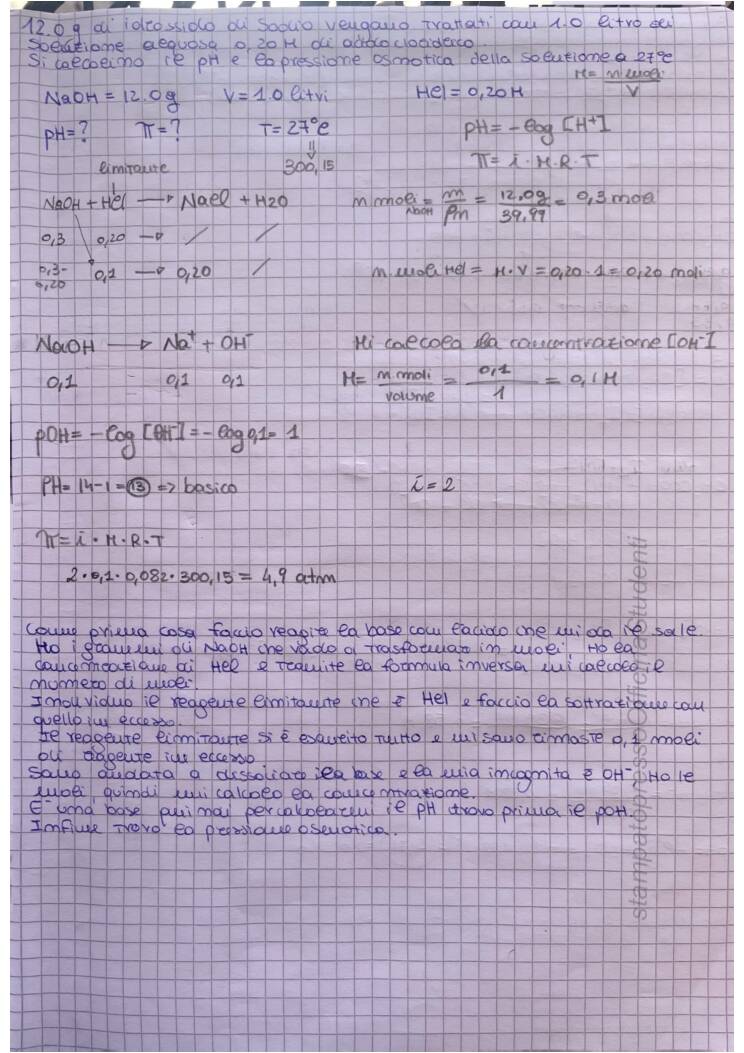 12.0 g di idrossido di Sodio vengano trattati con 1.0 litro di
Soluzione acquosa 0,20 M di acido cloridrico
Si calcolino il pH e la pressione osmotica della soluzione a 27°C
M = n moli / V
NaOH = 12.0g V = 1.0 litri HCl = 0,20 M
pH = ? π = ? T = 27°C pH = -log [H+]
⇓
300,15 π = i · M · R · T
limitante
↓
NaOH + HCl → NaCl + H2O n moli NaOH = m / Pm = 12.0g / 39.99 = 0,3 mol
0,3 0,20 → / /
0,3-0,20 0,1 → 0,20 / n. moli HCl = M · V = 0,20 · 1 = 0,20 moli
NaOH → Na+ + OH- Mi calcolo la concentrazione [OH-]
0,1 0,1 0,1 M = n. moli / volume = 0,1 / 1 = 0,1 M
pOH = -log [OH-] = -log 0,1 = 1
PH = 14-1 = 13 => basico i = 2
π = i · M · R · T
2 · 0,1 · 0,082 · 300,15 = 4,9 atm
Come prima cosa faccio reagire la base con l'acido che mi da il sale.
Ho i grammi di NaOH che vado a trasformare in moli, Ho la
concentrazione di HCl e tramite la formula inversa mi calcolo il
numero di moli.
Individuo il reagente limitante che è HCl e faccio la sottrazione con
quello in eccesso.
Il reagente limitante si è esaurito tutto e mi sono rimaste 0,1 moli
di reagente in eccesso
Sono andata a dissociare la base e la mia incognita è OH- Ho le
moli, quindi mi calcolo la concentrazione.
E' una base quindi per calcolarmi il pH trovo prima il pOH.
Infine trovo la pressione osmotica.
stampatopressoOfficinaStudenti